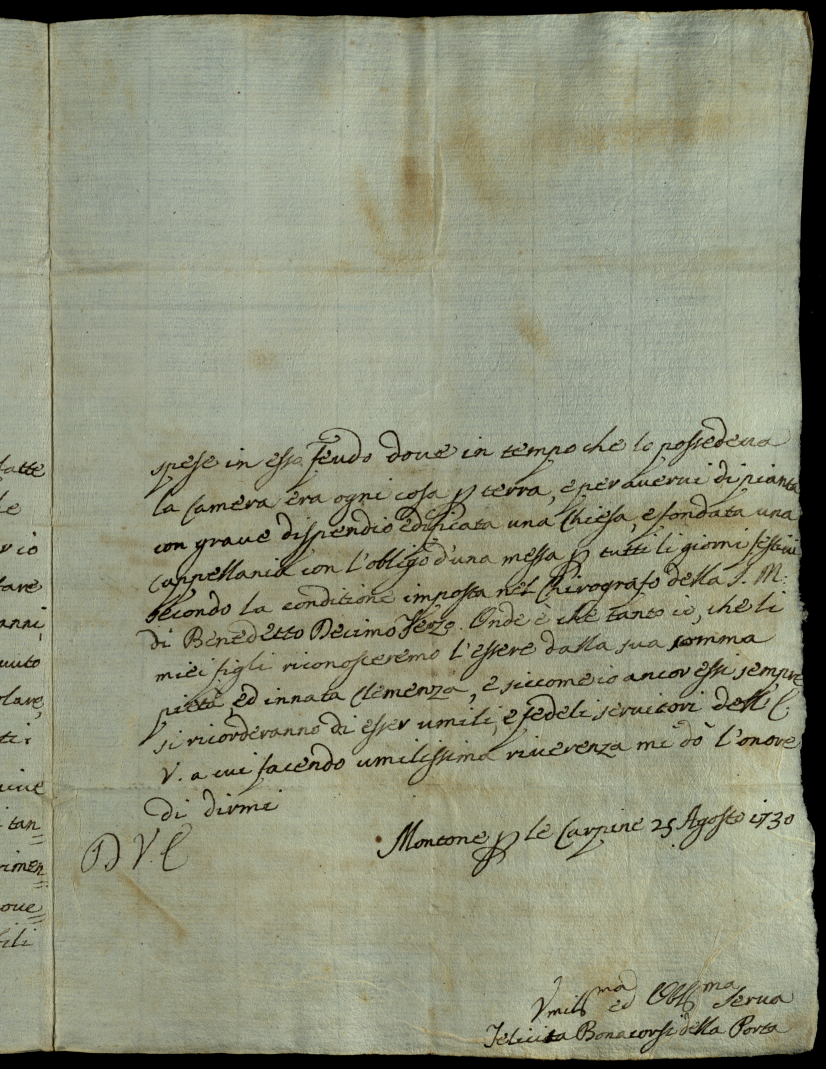 spese in esso feudo dove in tempo che lo possedeva
la Camera era ogni cosa p terra, e per avervi di pianta
con grave dispendio edificata una Chiesa, e fondata una
Cappellania con l'obligo d'una messa p tutti li giorni festivi
secondo la conditione imposta nel Chirografo della S. M:
di Benedetto Decimo Terzo. Onde è che tanto io, che li
miei figli riconosceremo l'essere dalla sua somma
pietà ed innata Clemenza, e siccome io ancor essi sempre
si ricorderanno di esser umili, e fedeli servitori dell' E.
V. a cui facendo umilissima riverenza mi dò l'onore
di dirmi
D V. E
Montone p le Carpine 25 Agosto 1730
Vmilissma ed Obblma Serva
Felicita Bonacorsi della Porta
fatte
le
rio
fare
anni,
olare,
tti
tan=
rimen=
ove=
bili